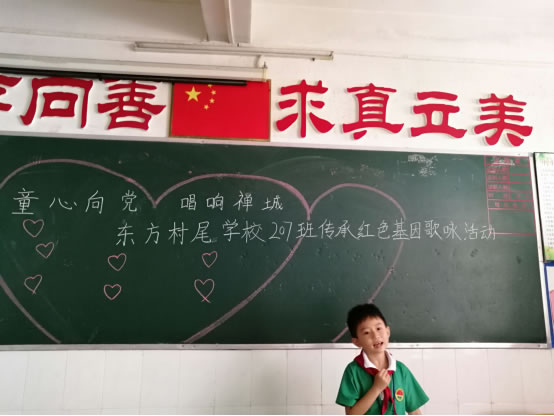 向善 求真立美
童心向党 唱响禅城
东方村尾学校207班传承红色基因歌咏活动